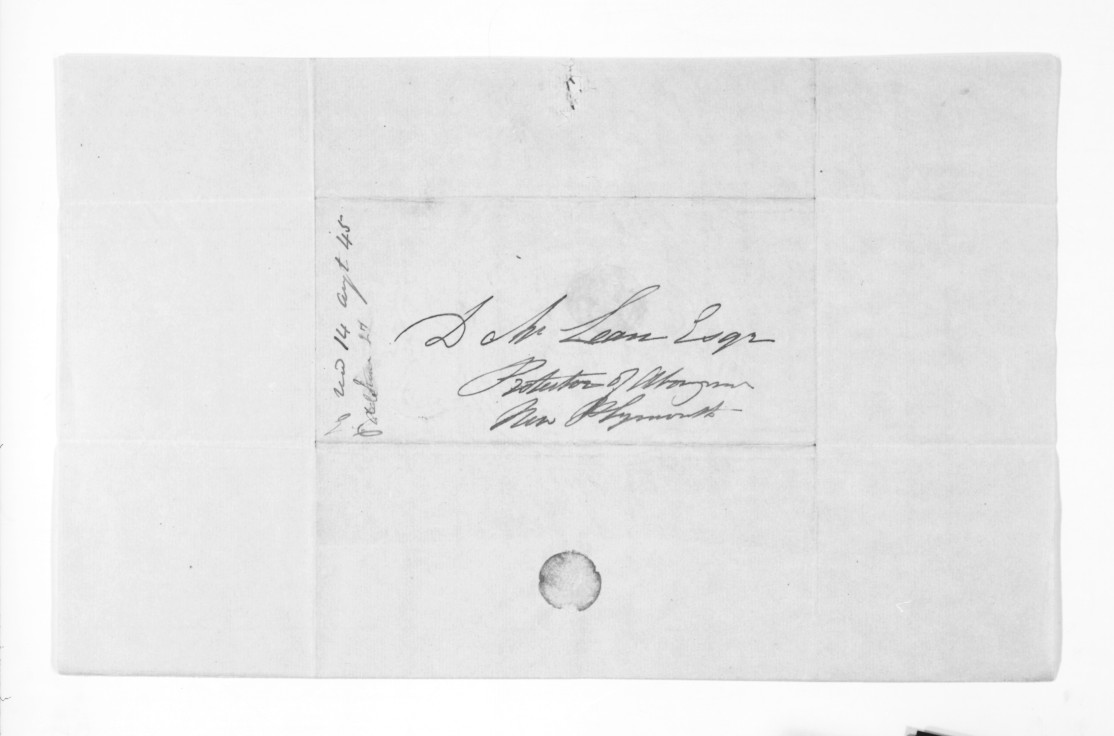 D Mc Lean Esqr
Protector of Aborigines
New Plymouth
14 Augt 45